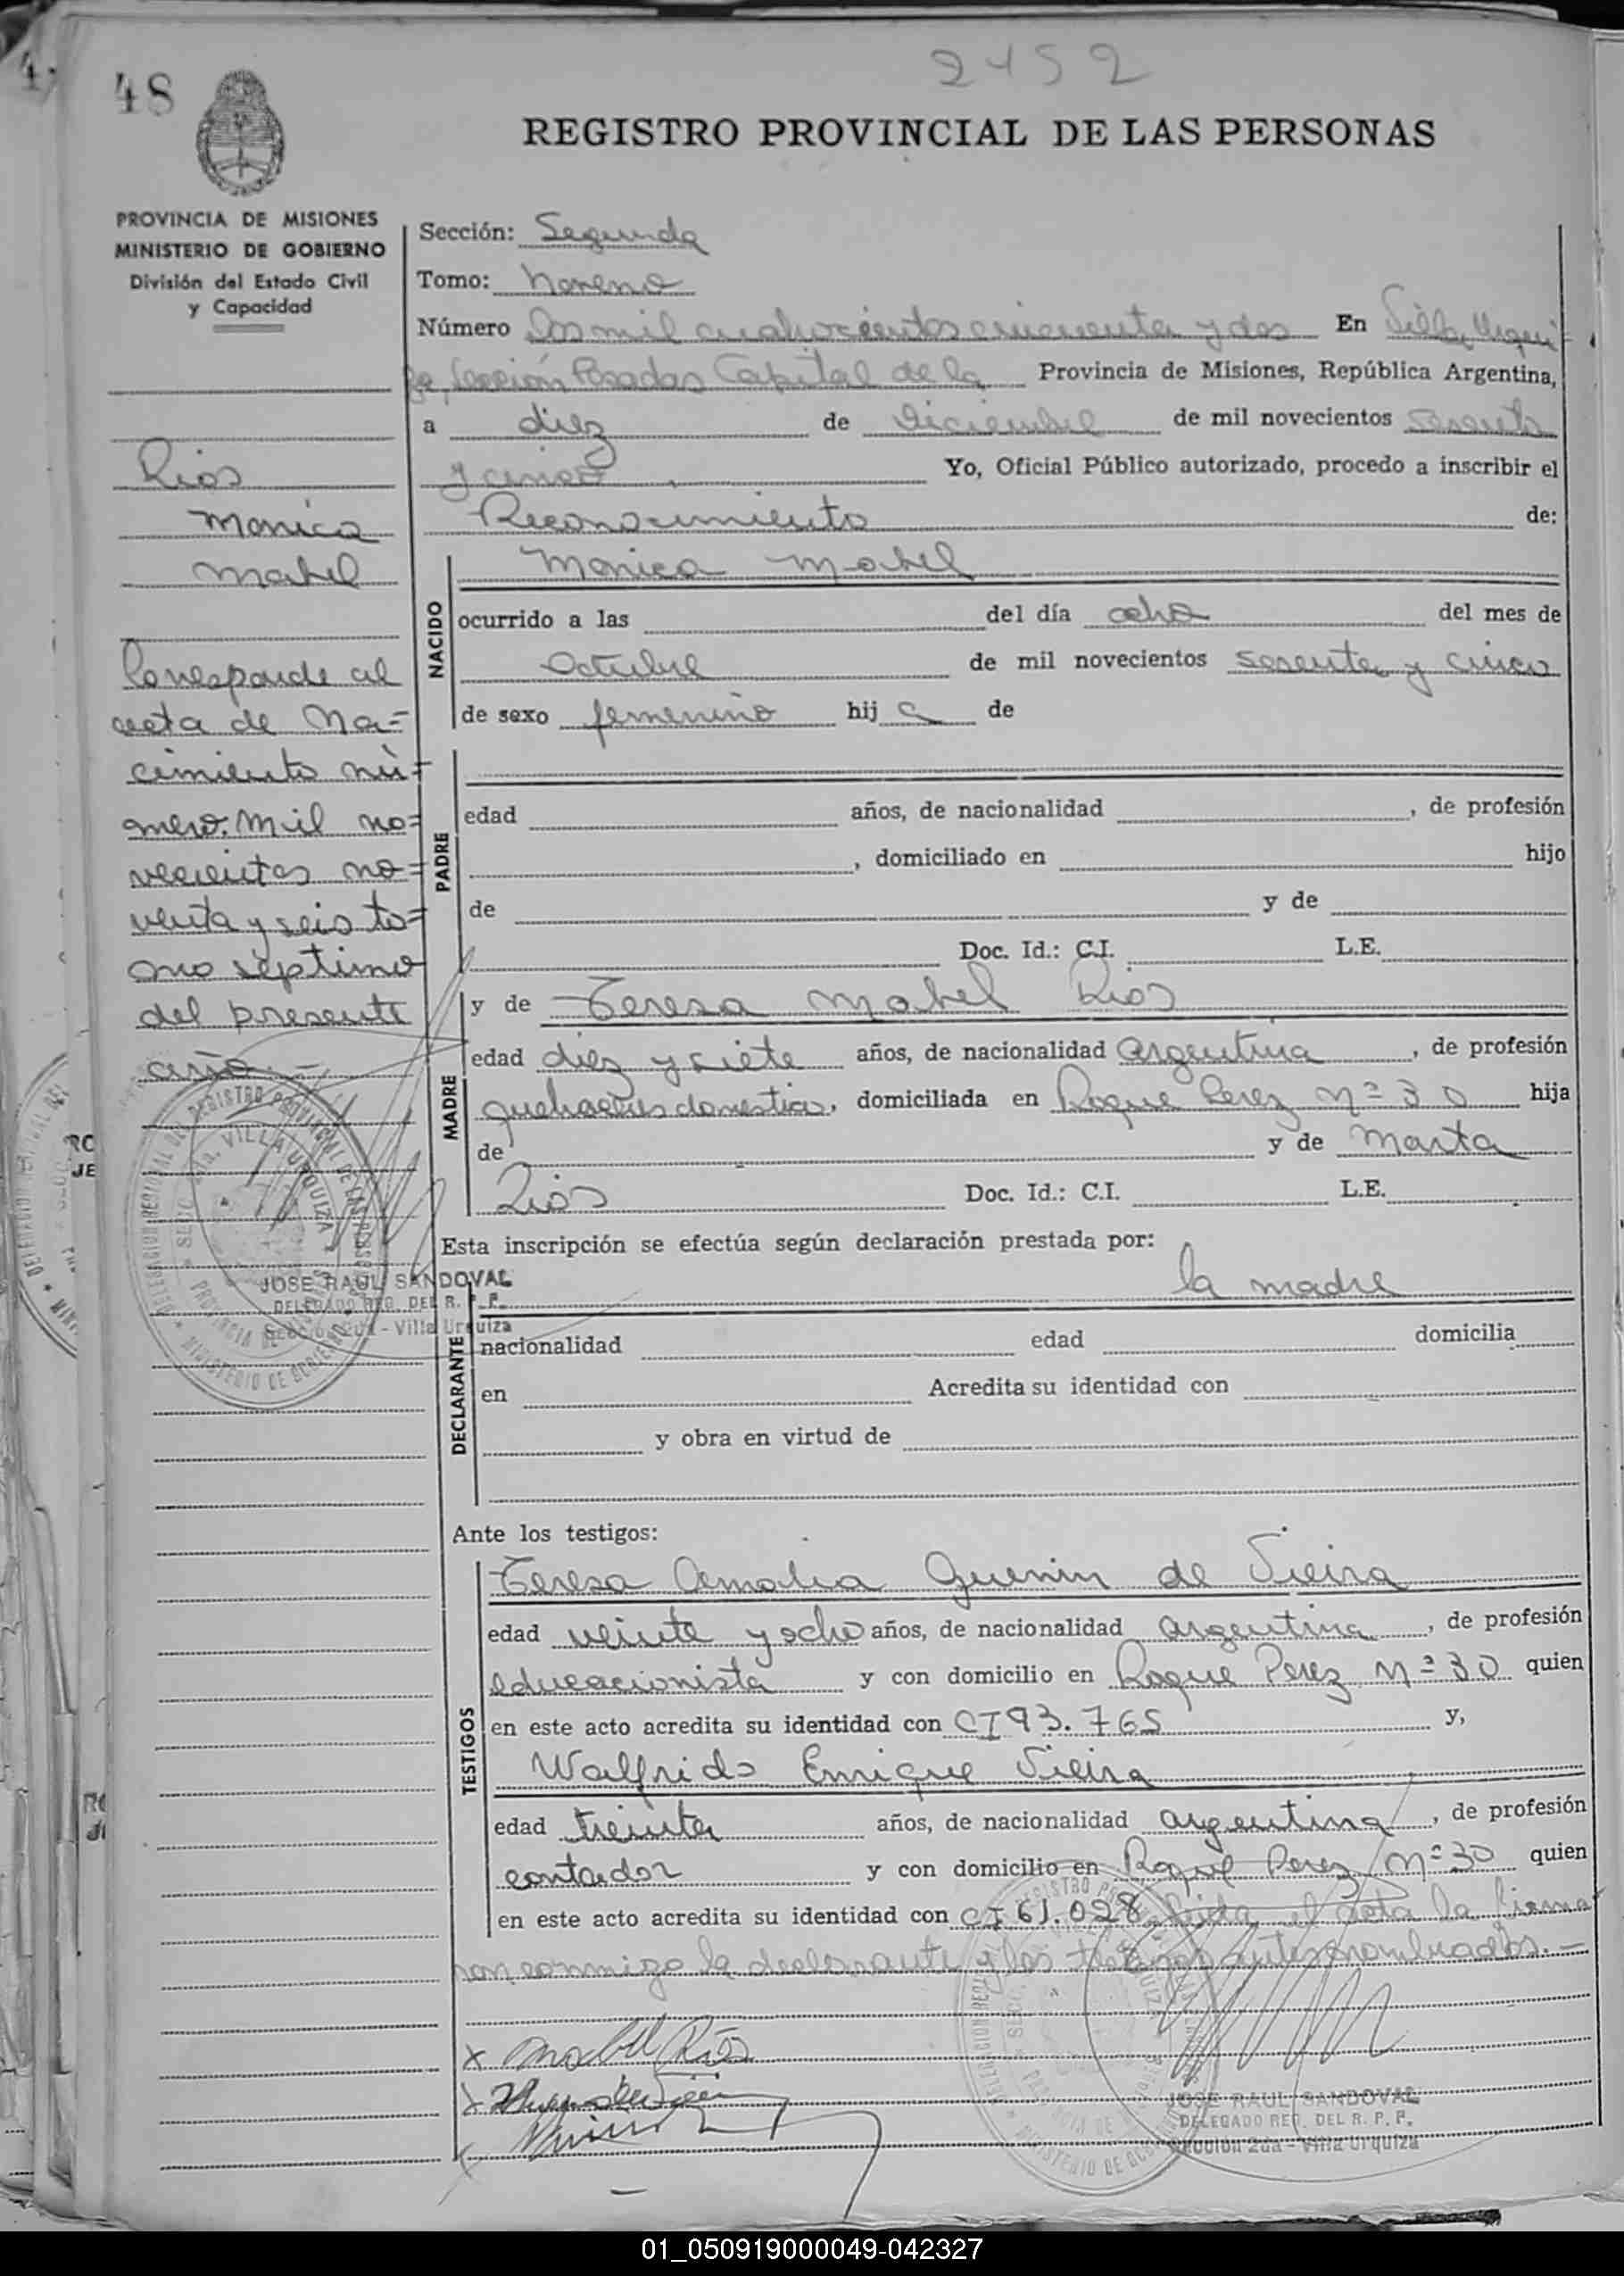 2452
48
REGISTRO PROVINCIAL DE LAS PERSONAS
PROVINCIA DE MISIONES
MINISTERIO DE GOBIERNO
División del Estado Civil
y Capacidad
Rios
Monica
Mabel
Corresponde al
acta de Na=
cimiento nú=
mero. Mil no=
vecientos no=
venta y seis to=
mo septimo
del presente
año.-
JOSE RAUL SANDOVAL
DELEGADO REG. DEL R. P. P.
Sección 2da - Villa Urquiza
Sección: Segunda
Tomo: Noveno
Número Dos mil cuatrocientos cincuenta y dos En Villa Urqui
za, Sección Posadas Capital de la Provincia de Misiones, República Argentina,
a diez de Diciembre de mil novecientos sesenta
y cinco, Yo, Oficial Público autorizado, procedo a inscribir el
Reconocimiento de:
NACIDO
Monica Mabel
ocurrido a las del día ocho del mes de
Octubre de mil novecientos sesenta y cinco
de sexo femenino hij a de
PADRE
edad años, de nacionalidad , de profesión
, domiciliado en hijo
de y de
Doc. Id.: C.I. L.E.
MADRE
y de Teresa Mabel Rios
edad diez y siete años, de nacionalidad argentina, de profesión
quehaceres domesticos, domiciliada en Roque Perez Nº 30 hija
de y de Marta
Rios Doc. Id.: C.I. L.E.
Esta inscripción se efectúa según declaración prestada por:
la madre
DECLARANTE
nacionalidad edad domicilia
en Acredita su identidad con
y obra en virtud de
Ante los testigos:
TESTIGOS
Teresa Amalia Guenin de Vieira
edad veinte y ocho años, de nacionalidad argentina, de profesión
educacionista y con domicilio en Roque Perez Nº 30 quien
en este acto acredita su identidad con CI 93.765 y,
Walfrido Enrique Vieira
edad treinta años, de nacionalidad argentina, de profesión
contador y con domicilio en Roque Perez Nº 30 quien
en este acto acredita su identidad con CI 61.028 Leida el acta la firma
ron conmigo la declarante y los testigos antes nombrados.-
x Mabel Ríos
JOSE RAUL SANDOVAL
DELEGADO REG. DEL R. P. P.
Sección 2da - Villa Urquiza
01_050919000049-042327